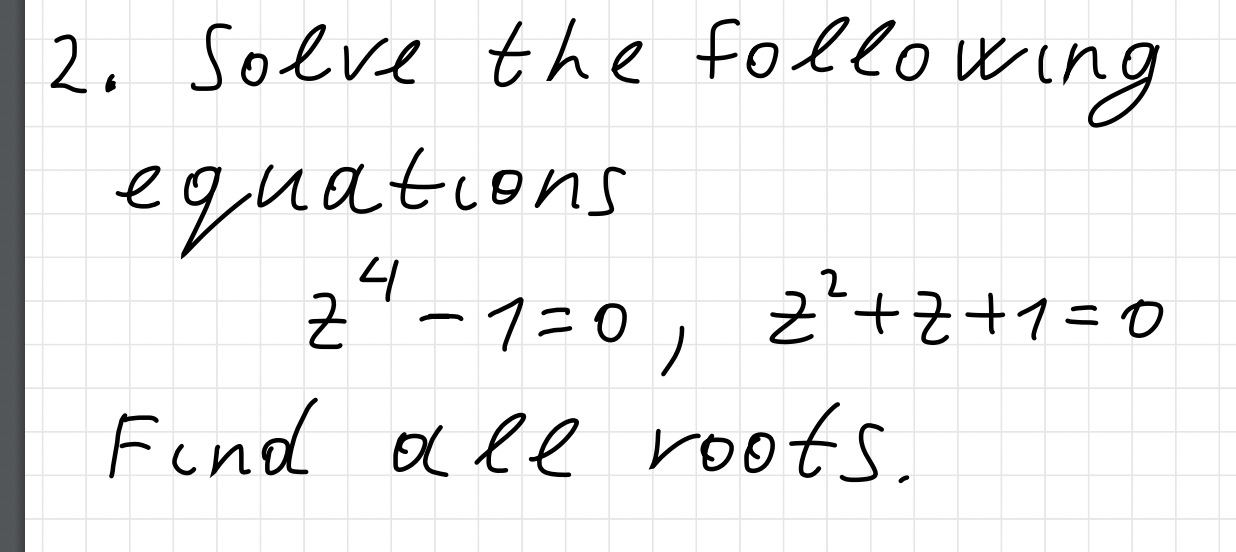 2. Solve the following
equations
z⁴ - 1 = 0, z² + z + 1 = 0
Find all roots.